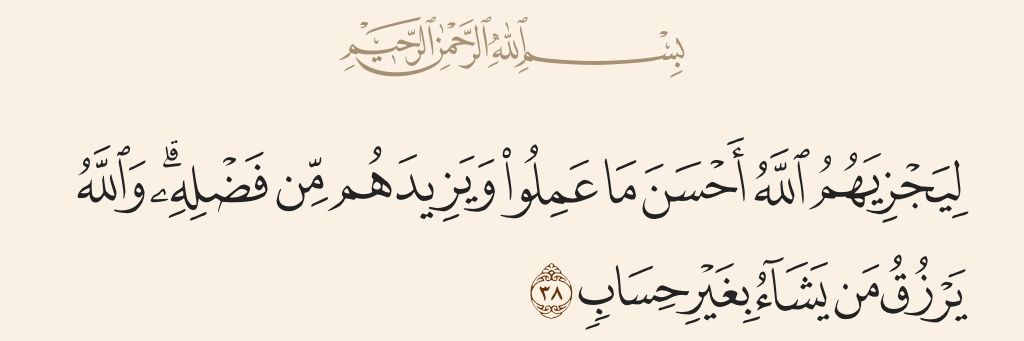 بِسْمِ ٱللَّهِ ٱلرَّحْمَٰنِ ٱلرَّحِيمِ
لِيَجْزِيَهُمُ ٱللَّهُ أَحْسَنَ مَا عَمِلُوا۟ وَيَزِيدَهُم مِّن فَضْلِهِۦۗ وَٱللَّهُ
يَرْزُقُ مَن يَشَآءُ بِغَيْرِ حِسَابٍ ٣٨